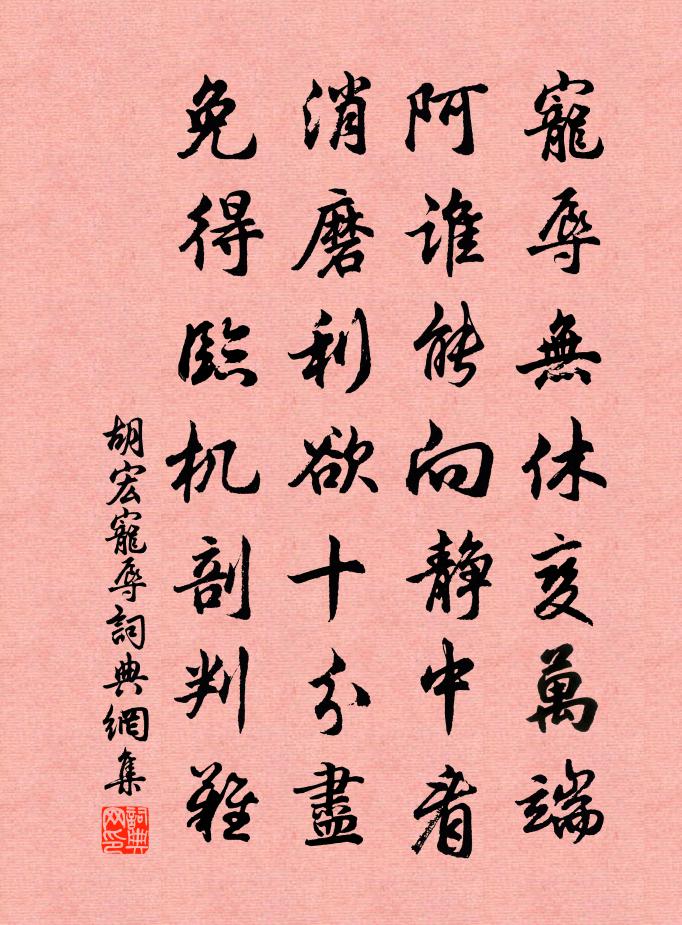 寵辱無休变萬端
阿谁能向静中看
消磨利欲十分盡
免得臨机剖判難
胡宏寵辱詞典網集
詞典网印